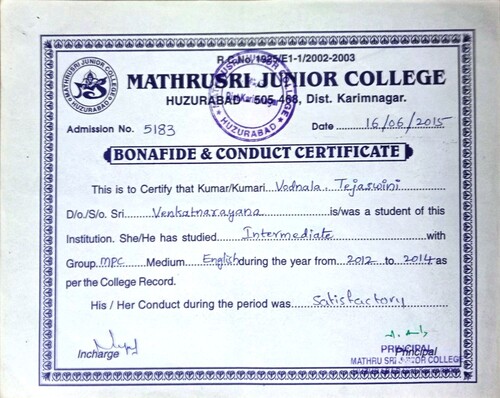 R.C.No.1925/E1-1/2002-2003
MATHRUSRI JUNIOR COLLEGE
HUZURABAD - 505 468, Dist. Karimnagar.
Admission No. 5183 Date 16/06/2015
BONAFIDE & CONDUCT CERTIFICATE
This is to Certify that Kumar/Kumari Vodnala. Tejaswini
D/o./S/o. Sri Venkatnarayana is/was a student of this
Institution. She/He has studied Intermediate with
Group MPC Medium English during the year from 2012 to 2014 as
per the College Record.
His / Her Conduct during the period was Satisfactory
Incharge
Principal
PRINCIPAL
MATHRU SRI JUNIOR COLLEGE
MATHRUSRI JUNIOR COLLEGE
HUZURABAD
HUZURABAD